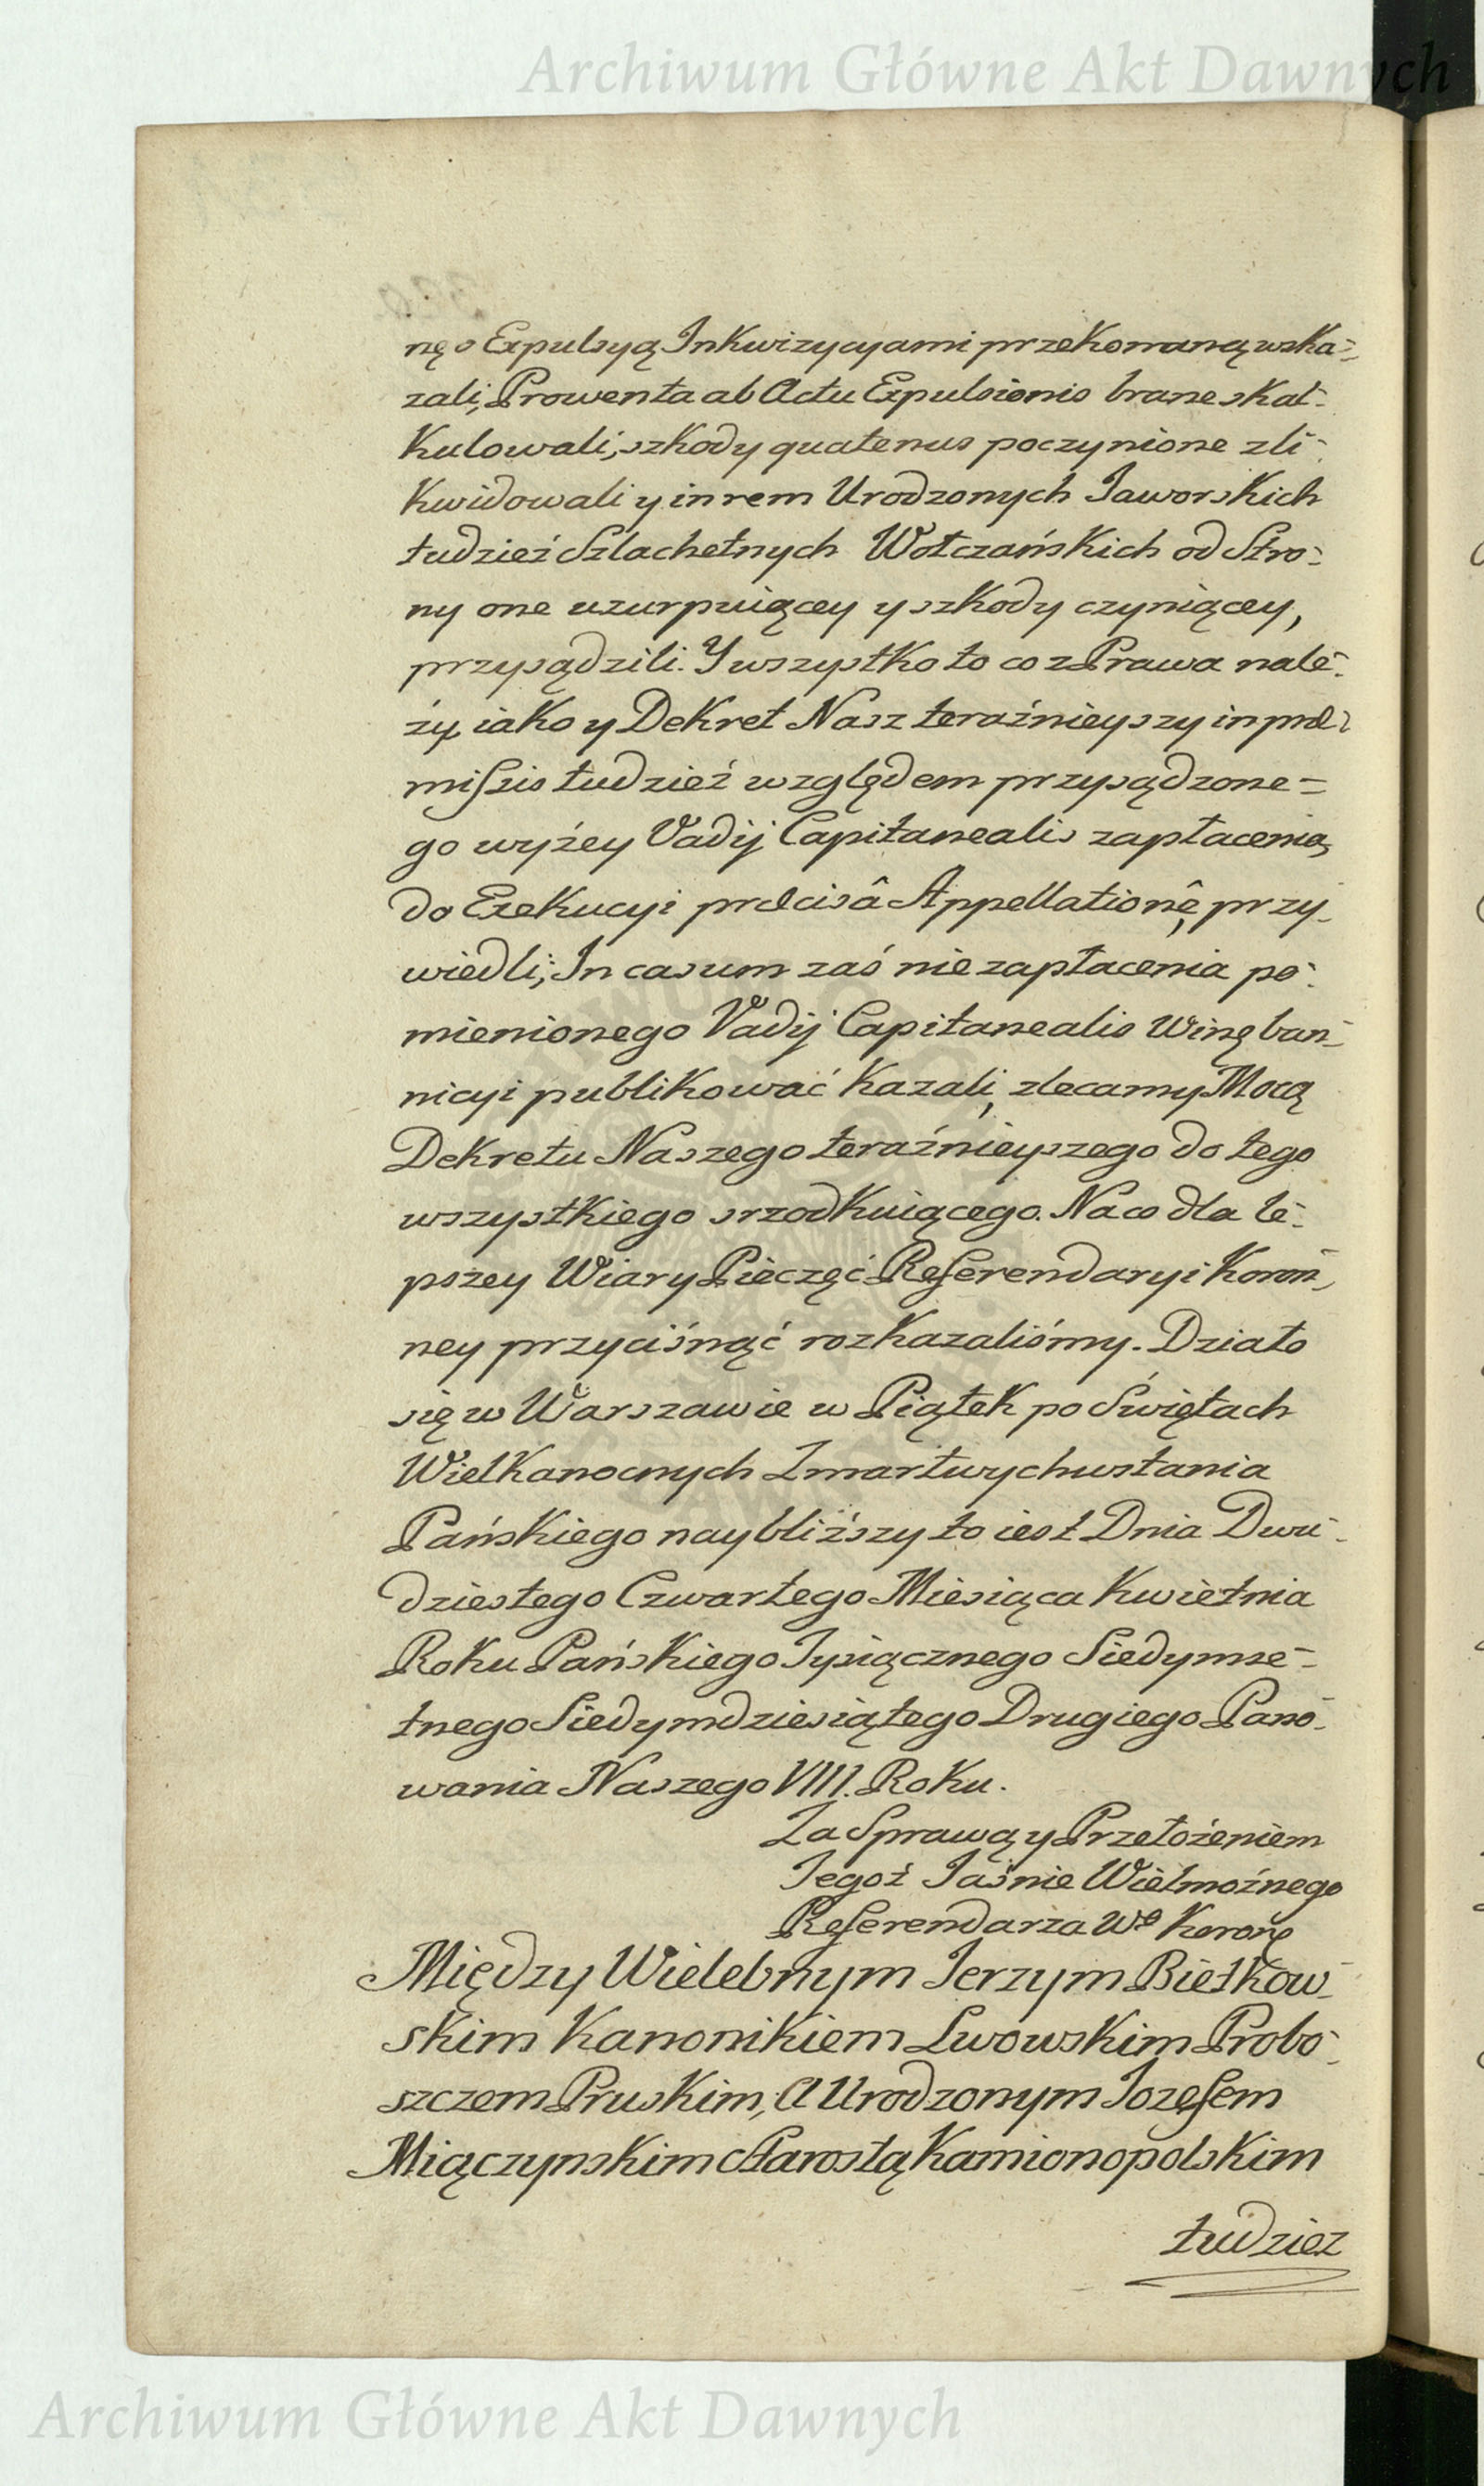 Archiwum Główne Akt Dawnych
nę o Expulsyą Inkwizycyami przekonaną wska-
zali, Prowenta ab Actu Expulsionis brane skal-
kulowali, szkody quatenus poczynione zli-
kwidowali y in rem Urodzonych Jaworskich
tudzież Szlachetnych Wołczańskich od Stro-
ny one uzurpuiącey y szkody czyniącey,
przysądzili. Y wszystko to co z Prawa nale-
ży, iako y Dekret Nasz teraźnieyszy in præ-
missis tudzież względem przysądzone-
go wyżey Vadij Capitanealis zapłacenia,
do Exekucyi præcisâ Appellationê, przy-
wiedli; In casum zaś nie zapłacenia po-
mienionego Vadij Capitanealis Winę ban-
nicyi publikować kazali, zlecamy Mocą
Dekretu Naszego teraźnieyszego do tego
wszystkiego srzodkuiącego. Na co dla le-
pszey Wiary Pieczęć Referendaryi Koron-
ney przycisnąć rozkazaliśmy. Działo
się w Warszawie w Piątek po Świętach
Wielkanocnych Zmartwychwstania
Pańskiego naybliższy to iest Dnia Dwu-
dziestego Czwartego Miesiąca Kwietnia
Roku Pańskiego Tysiącznego Siedymse-
tnego Siedymdziesiątego Drugiego Pano-
wania Naszego VIII. Roku.
Za Sprawą y Przełożeniem
Jegoż Jaśnie Wielmożnego
Referendarza Wo Koronę
Między Wielebnym Jerzym Biełkow-
skim Kanonikiem Lwowskim Probo-
szczem Pruskim, A Urodzonym Jozefem
Miączynskim Starostą Kamionopolskim
tudziez
Archiwum Główne Akt Dawnych